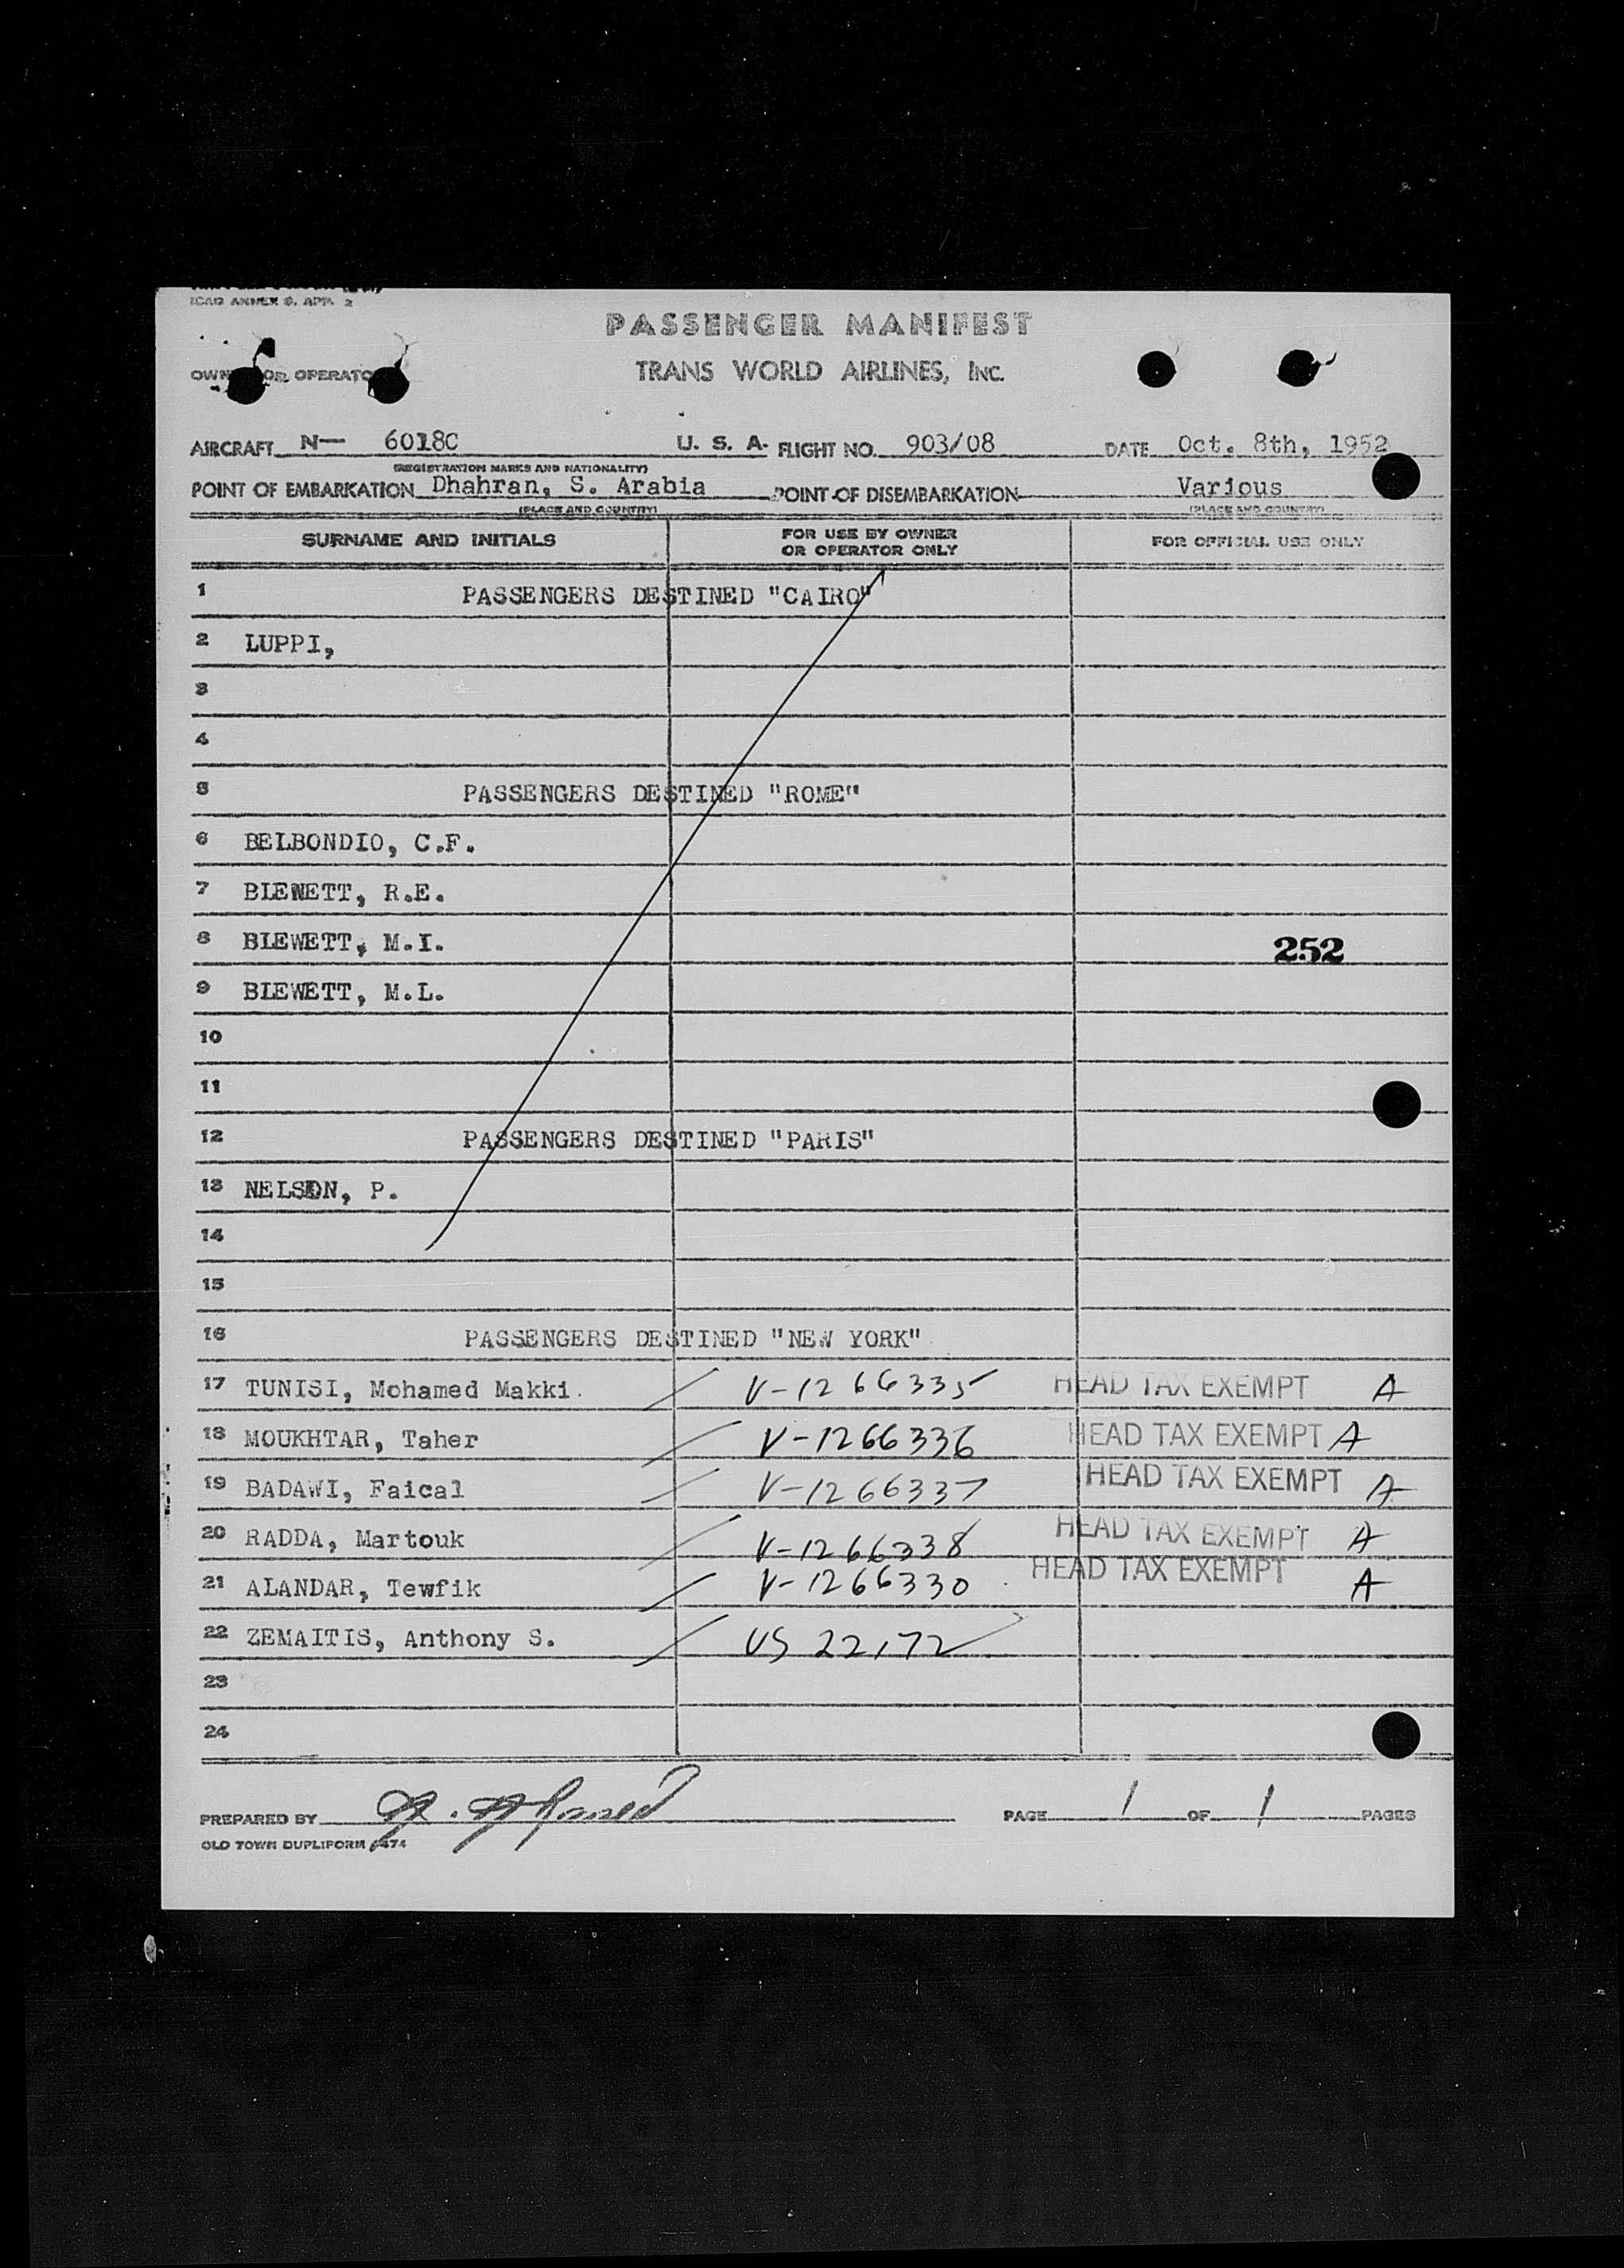 ICAO ANNEX 9, APP. 2
PASSENGER MANIFEST
OWNER OR OPERATOR TRANS WORLD AIRLINES, INC.
AIRCRAFT N— 6018C U. S. A. FLIGHT NO. 903/08 DATE Oct. 8th, 1952
(REGISTRATION MARKS AND NATIONALITY)
POINT OF EMBARKATION Dhahran, S. Arabia POINT OF DISEMBARKATION Various
(PLACE AND COUNTRY) (PLACE AND COUNTRY)
SURNAME AND INITIALS FOR USE BY OWNER OR OPERATOR ONLY FOR OFFICIAL USE ONLY
1 PASSENGERS DESTINED "CAIRO"
2 LUPPI,
3
4
5 PASSENGERS DESTINED "ROME"
6 BELBONDIO, C.F.
7 BLEWETT, R.E.
8 BLEWETT, M.I. 252
9 BLEWETT, M.L.
10
11
12 PASSENGERS DESTINED "PARIS"
13 NELSON, P.
14
15
16 PASSENGERS DESTINED "NEW YORK"
17 TUNISI, Mohamed Makki. V-1266335 HEAD TAX EXEMPT A
18 MOUKHTAR, Taher V-1266336 HEAD TAX EXEMPT A
19 BADAWI, Faical V-1266337 HEAD TAX EXEMPT A
20 RADDA, Martouk V-1266338 HEAD TAX EXEMPT A
21 ALANDAR, Tewfik V-1266330 HEAD TAX EXEMPT A
22 ZEMAITIS, Anthony S. US 22172
23
24
PREPARED BY PAGE 1 OF 1 PAGES
OLD TOWN DUPLIFORM